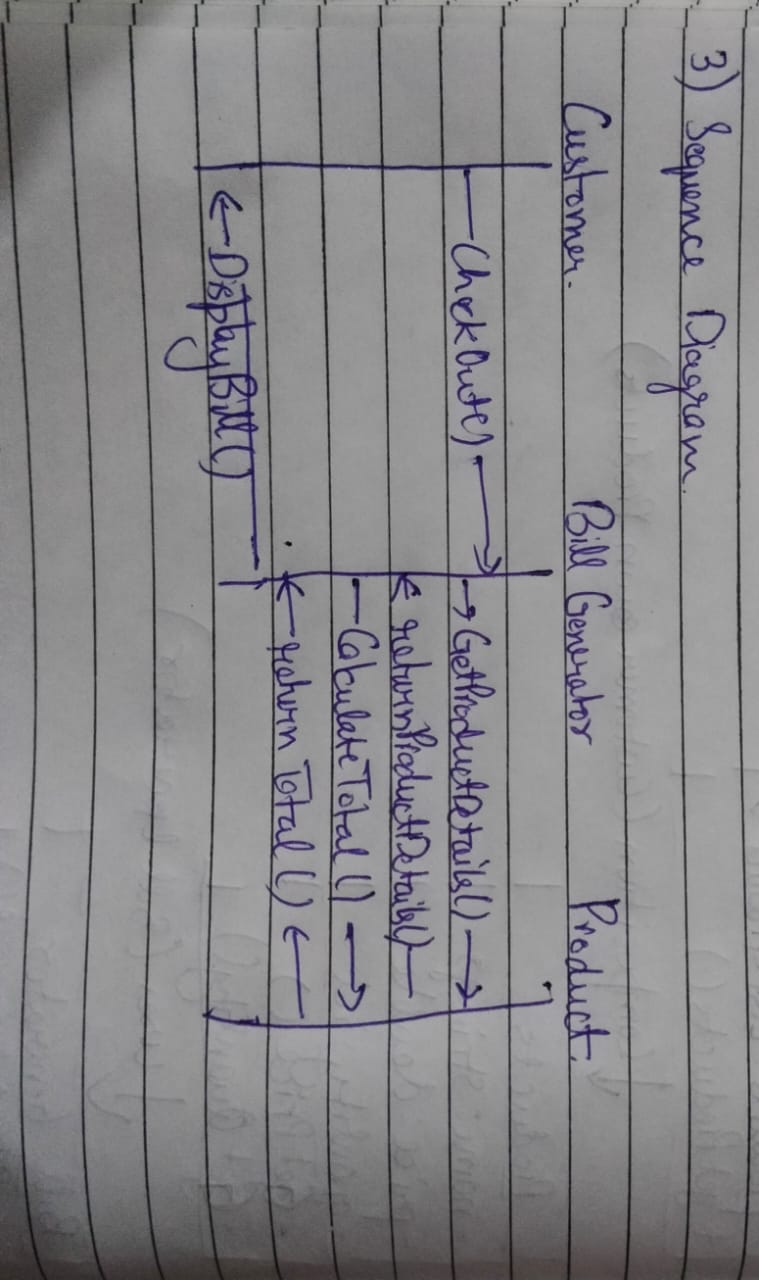 3) Sequence Diagram.
Customer. Bill Generator Product.
CheckOute) GetProductDetails()
returnProductDetails()
CalculateTotal ()
return Total ()
DisplayBill()